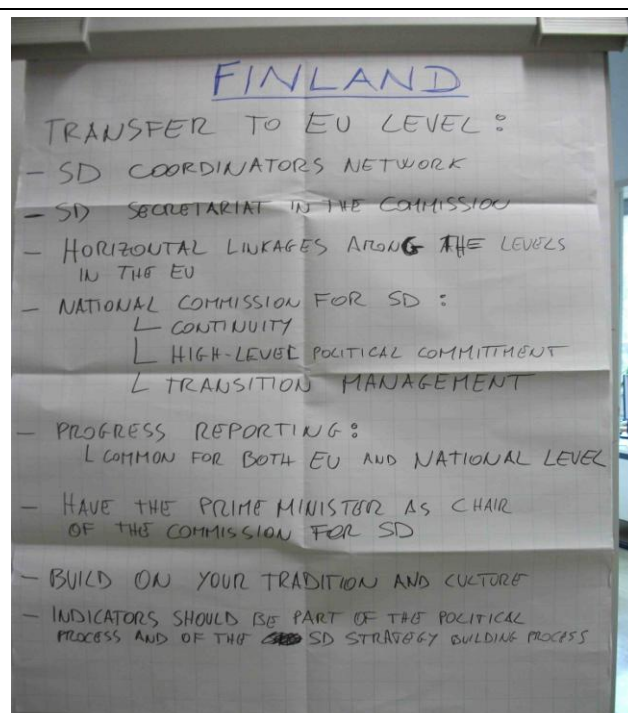 FINLAND
TRANSFER TO EU LEVEL:
- SD COORDINATORS NETWORK
- SD SECRETARIAT IN THE COMMISSION
- HORIZONTAL LINKAGES AMONG THE LEVELS
IN THE EU
- NATIONAL COMMISSION FOR SD:
└ CONTINUITY
└ HIGH-LEVEL POLITICAL COMMITTMENT
└ TRANSITION MANAGEMENT
- PROGRESS REPORTING:
└ COMMON FOR BOTH EU AND NATIONAL LEVEL
- HAVE THE PRIME MINISTER AS CHAIR
OF THE COMMISSION FOR SD
- BUILD ON YOUR TRADITION AND CULTURE
- INDICATORS SHOULD BE PART OF THE POLITICAL
PROCESS AND OF THE SD STRATEGY BUILDING PROCESS